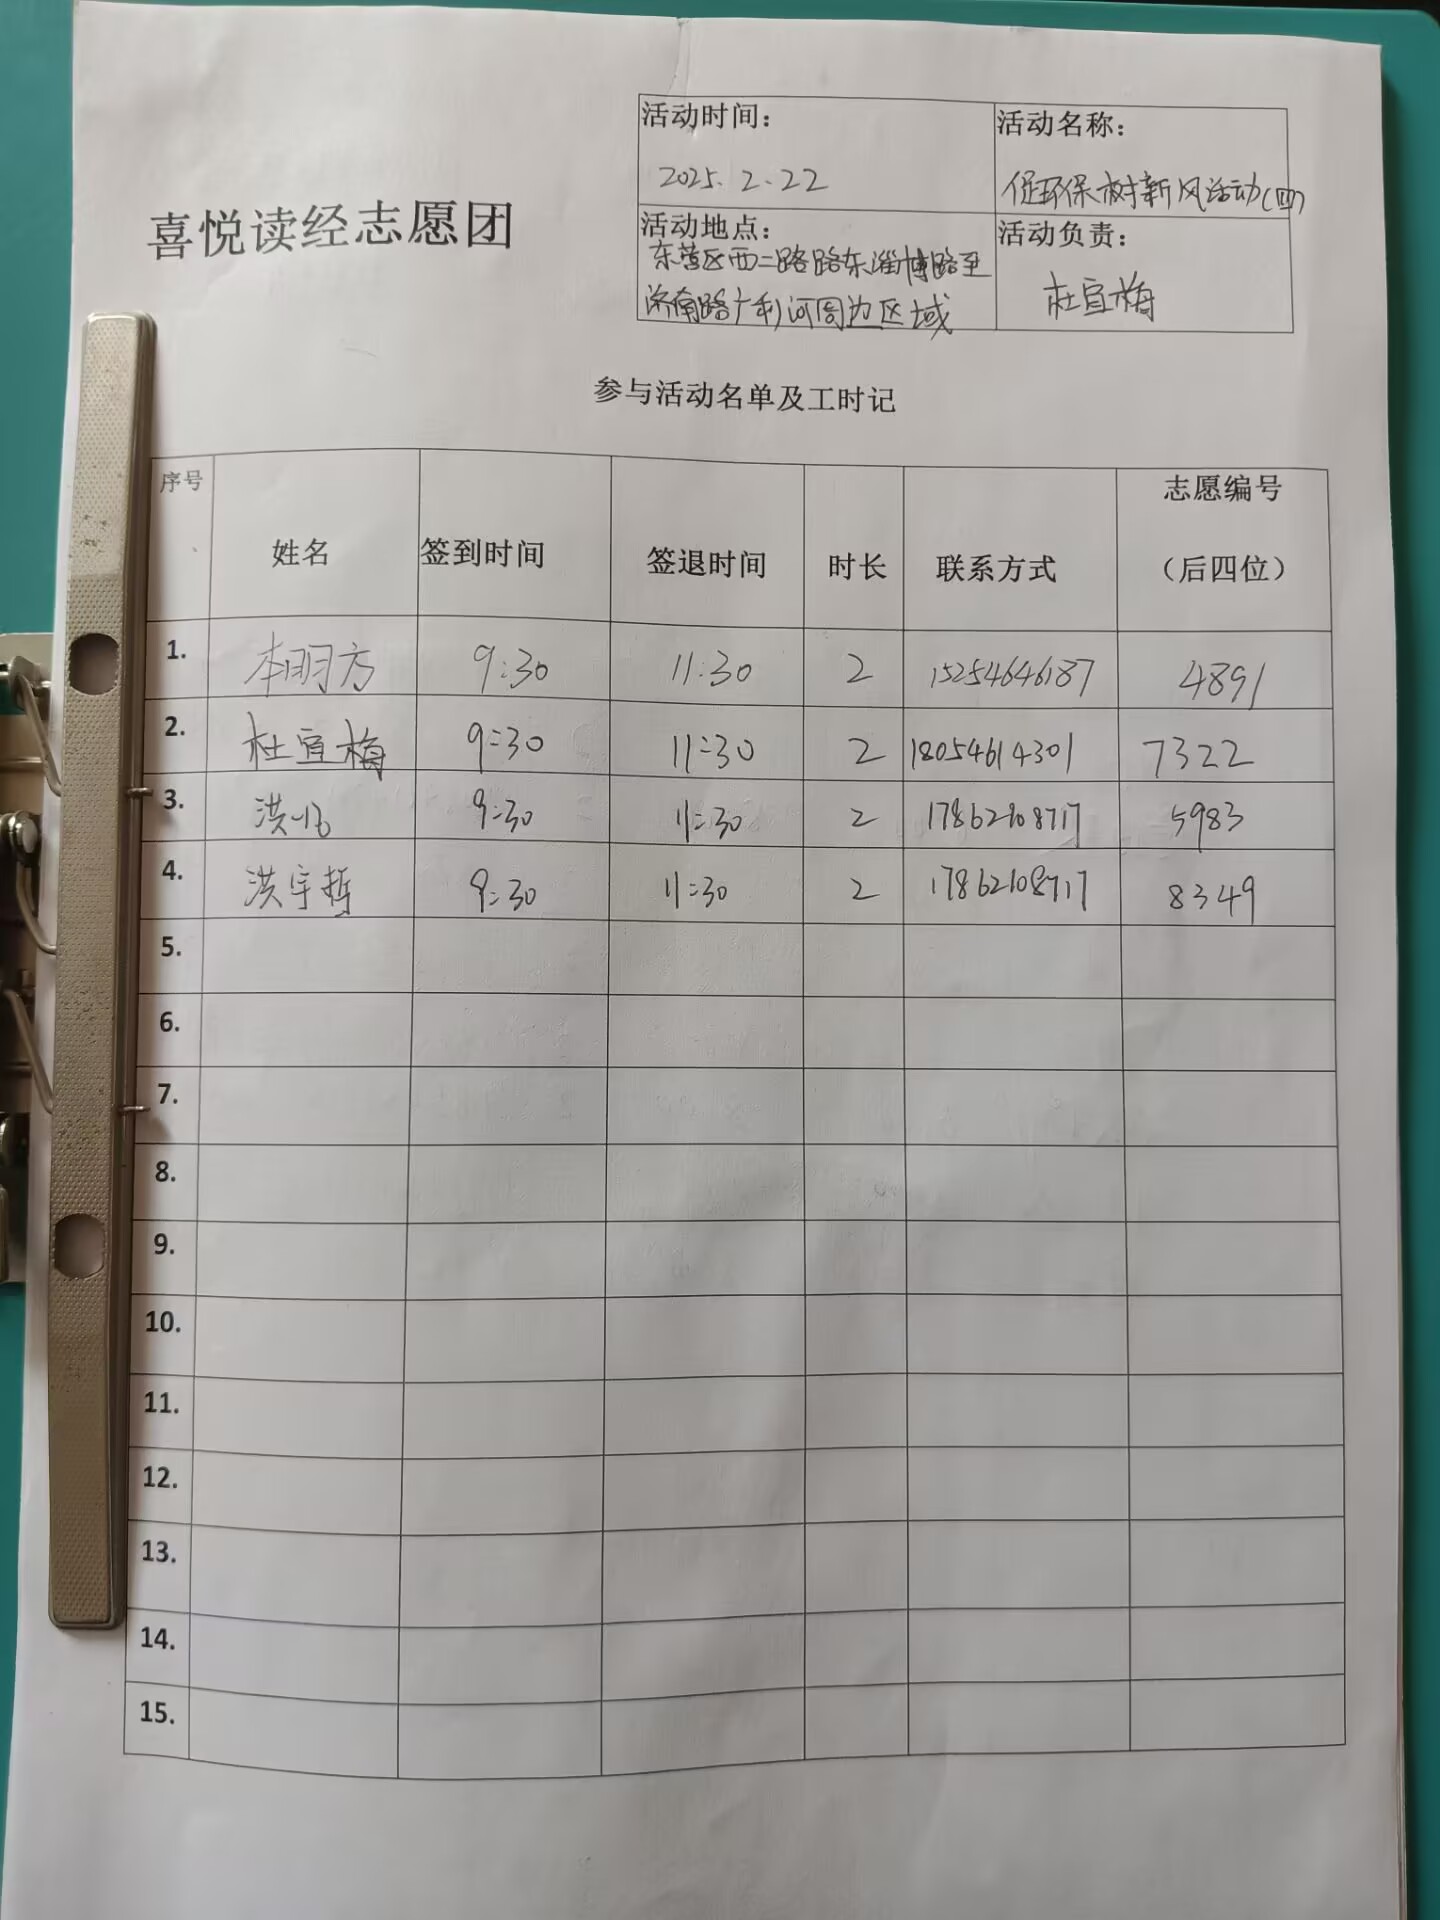 活动时间：
2025.2.22
活动名称：
促环保树新风活动(四)
喜悦读经志愿团
活动地点：
东营区西二路路东淄博路至
济南路广利河周边区域
活动负责：
杜宜梅
参与活动名单及工时记
序号 姓名 签到时间 签退时间 时长 联系方式 志愿编号（后四位）
1. 9:30 11:30 2 15254646187 4891
2. 杜宜梅 9:30 11:30 2 18054614301 7322
3. 洪 9:30 11:30 2 17862108717 5983
4. 洪宇哲 9:30 11:30 2 17862108717 8349
5.
6.
7.
8.
9.
10.
11.
12.
13.
14.
15.